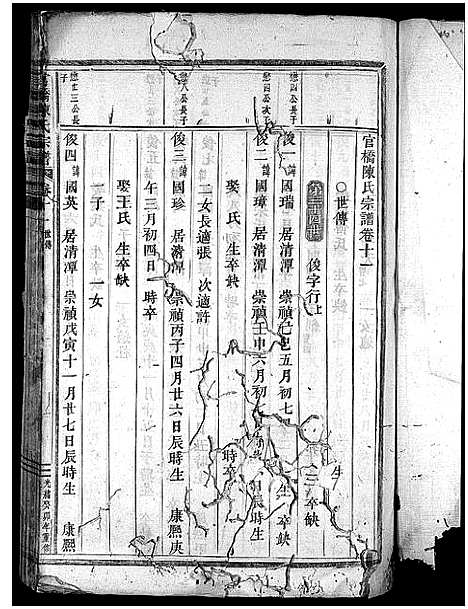 官橋陳氏宗譜卷十一
○世傳
第三十四世 俊字行上
懋四公長子
俊一 諱國瑞 居清潭 崇禎己巳五月初七 生 三 卒缺
懋四公次子
俊二 諱國璋 居清潭 崇禎壬申六月初七 日辰時生
娶 氏 生卒缺 時卒 生 卒缺
二女長適張 次適許
懋八公長子
俊三 諱國珍 居清潭 崇禎丙子四月廿六日辰時生 康熙庚
午三月初四日 時卒
娶王氏 生卒缺
一子 一女
懋廿三公長子
俊四 諱國英 居清潭 崇禎戊寅十一月廿七日辰時生 康熙
陳氏宗譜
世傳
光緒癸卯年重修